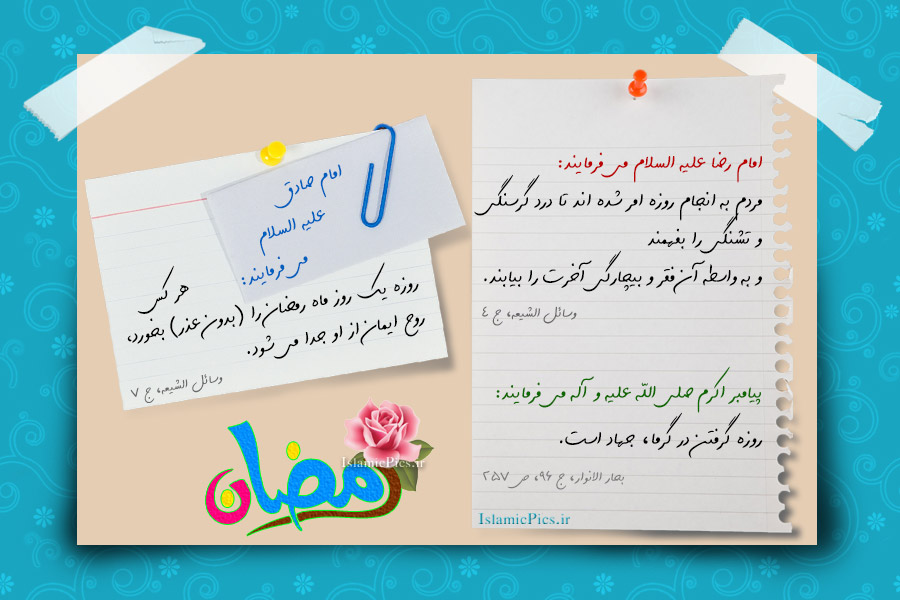 امام رضا علیه السلام می فرمایند:
مردم به انجام روزه امر شده اند تا درد گرسنگی
و تشنگی را بفهمند
و به واسطه آن فقر و بیچارگی آخرت را بیابند.
وسائل الشیعه، ج ٤
پیامبر اکرم صلی الله علیه و آله می فرمایند:
روزه گرفتن در گرما، جهاد است.
بحار الانوار، ج ۹۶، ص ۲۵۷
IslamicPics.ir
امام صادق
علیه السلام
می فرمایند:
هر کس
روزه یک روز ماه رمضان را (بدون عذر) بخورد،
روح ایمان از او جدا می شود.
وسائل الشیعه، ج ۷
رمضان
IslamicPics.ir